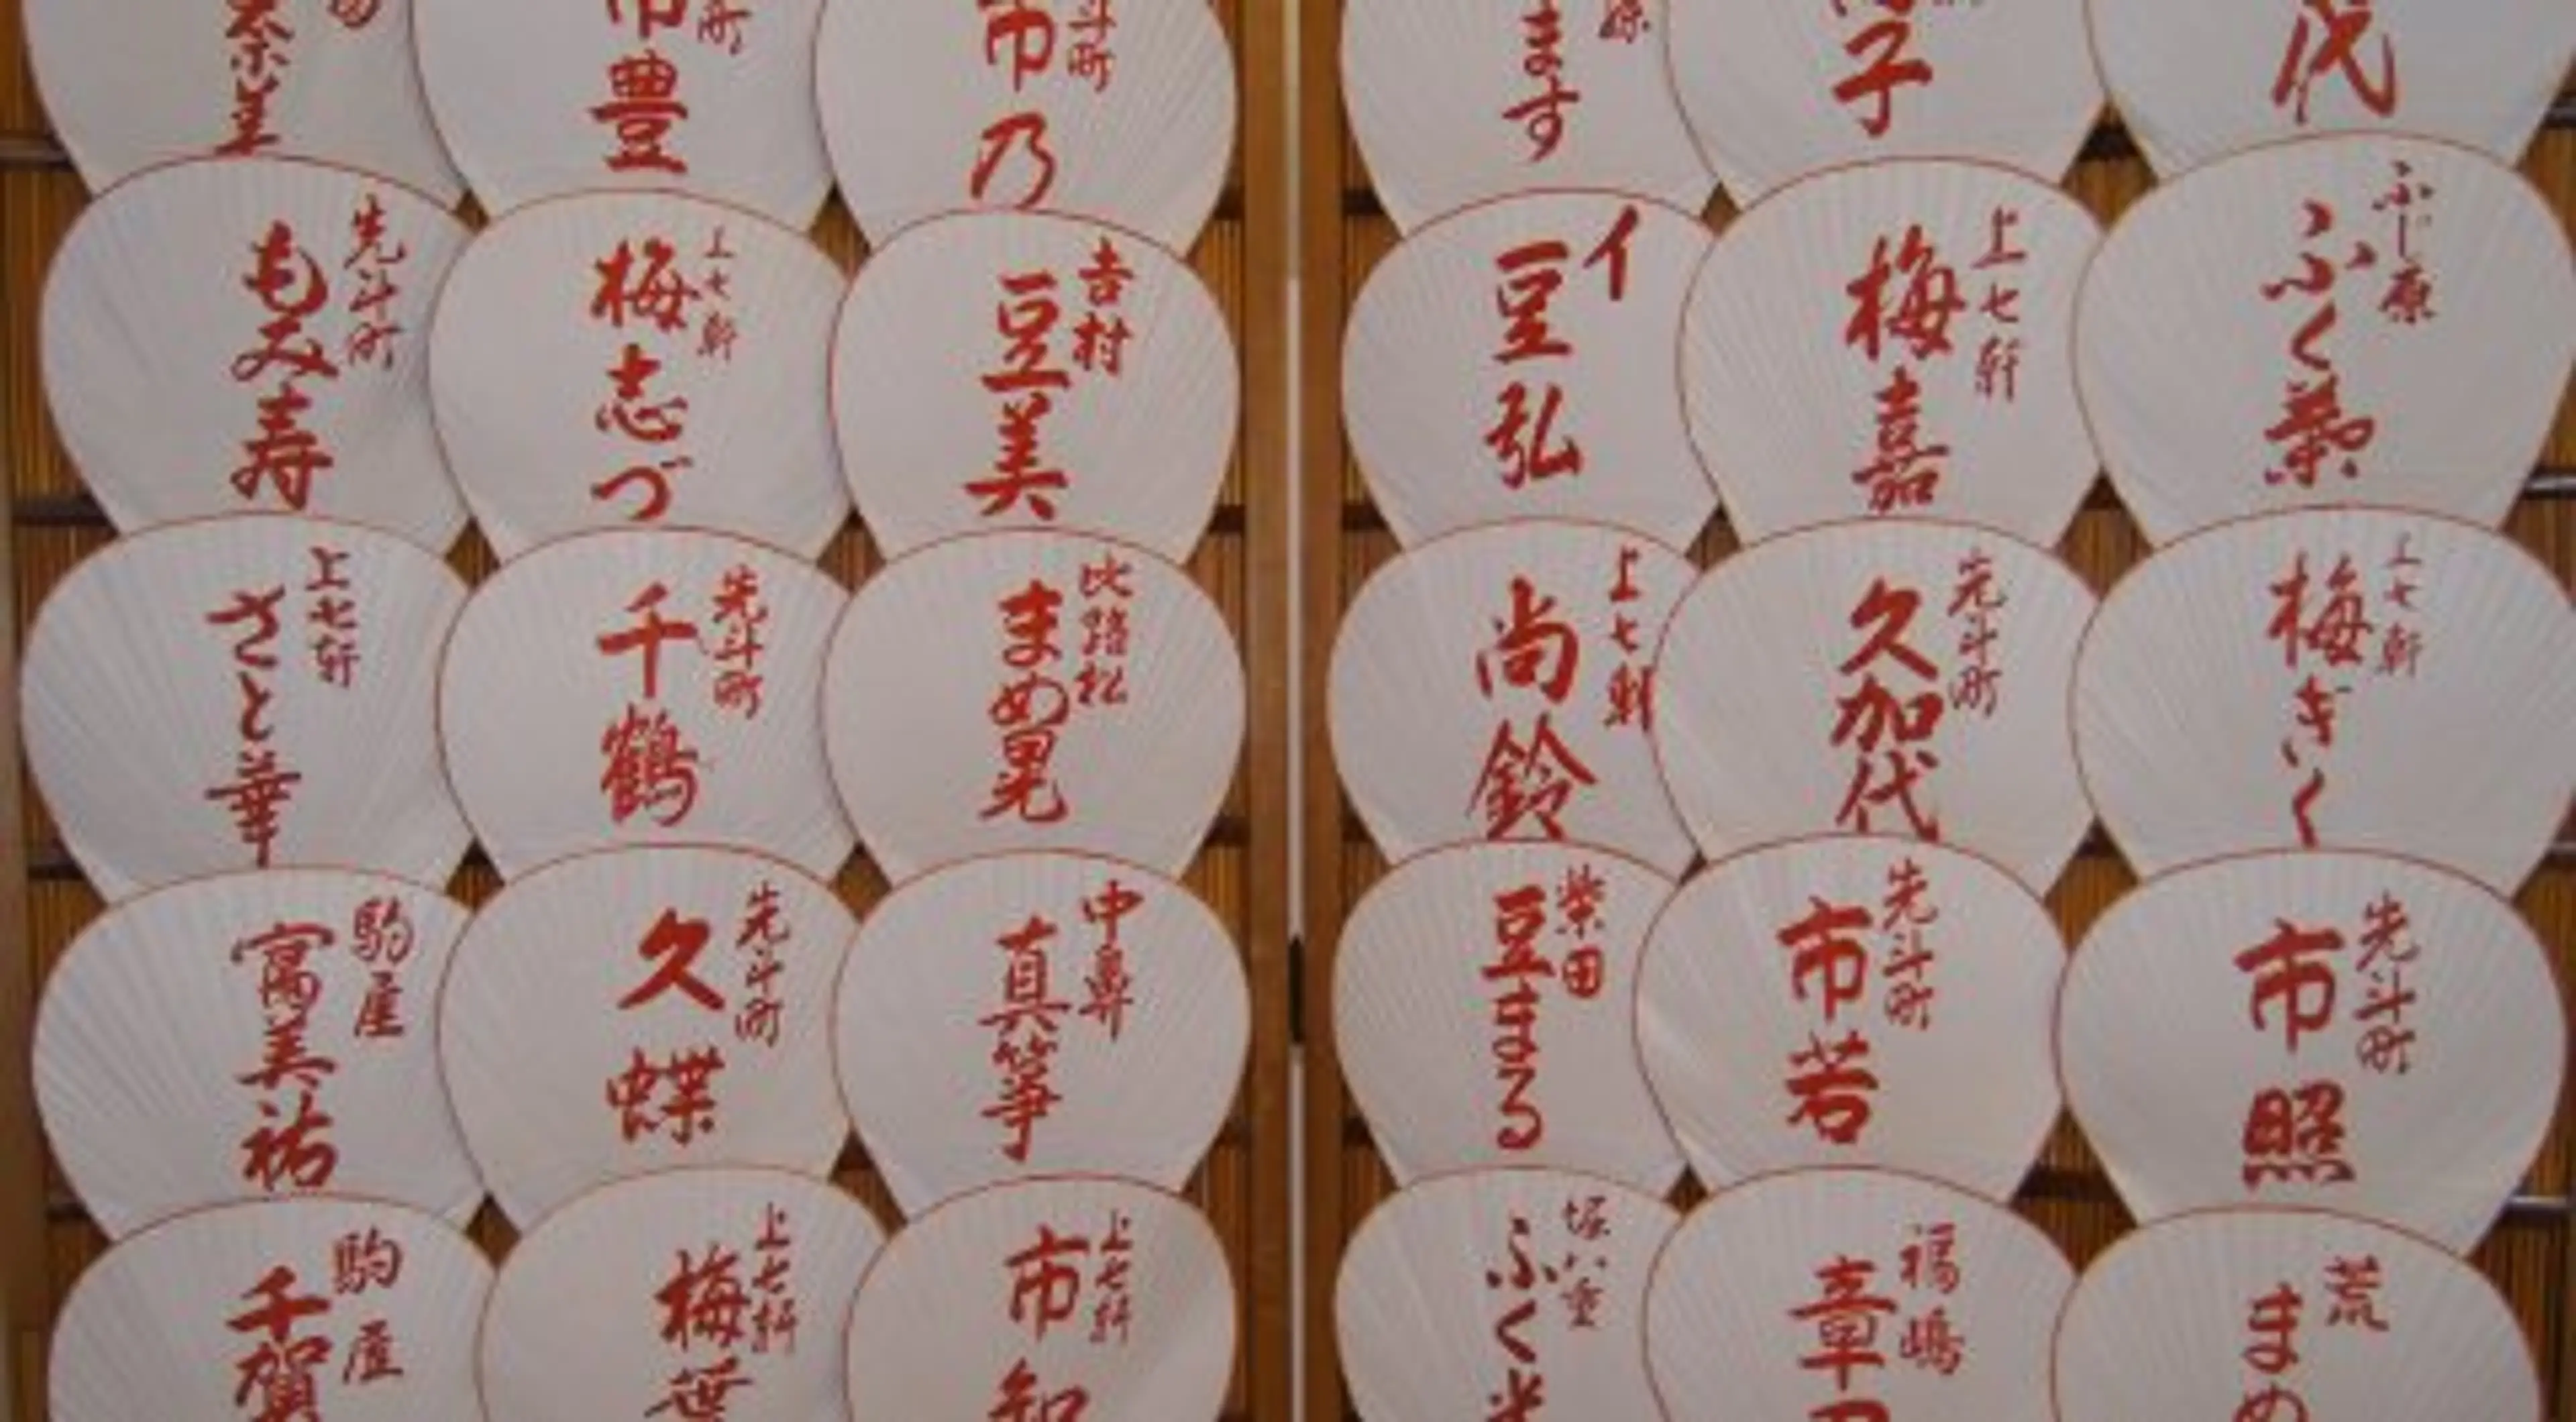 町
市豊
斗町
市乃
ます
子
代
先斗町
もみ寿
上七軒
梅志づ
吉村
豆美
イ
豆弘
上七軒
梅嘉
ふじ原
ふく
上七軒
さと華
先斗町
千鶴
まめ晃
上七軒
尚鈴
先斗町
久加代
上七軒
梅ぎく
駒屋
富美祐
先斗町
久蝶
真箏
柴田
豆まる
先斗町
市若
先斗町
市照
駒屋
千賀
上七軒
梅笹
上七軒
市知
堀八重
ふく
福嶋
章
荒
まめ